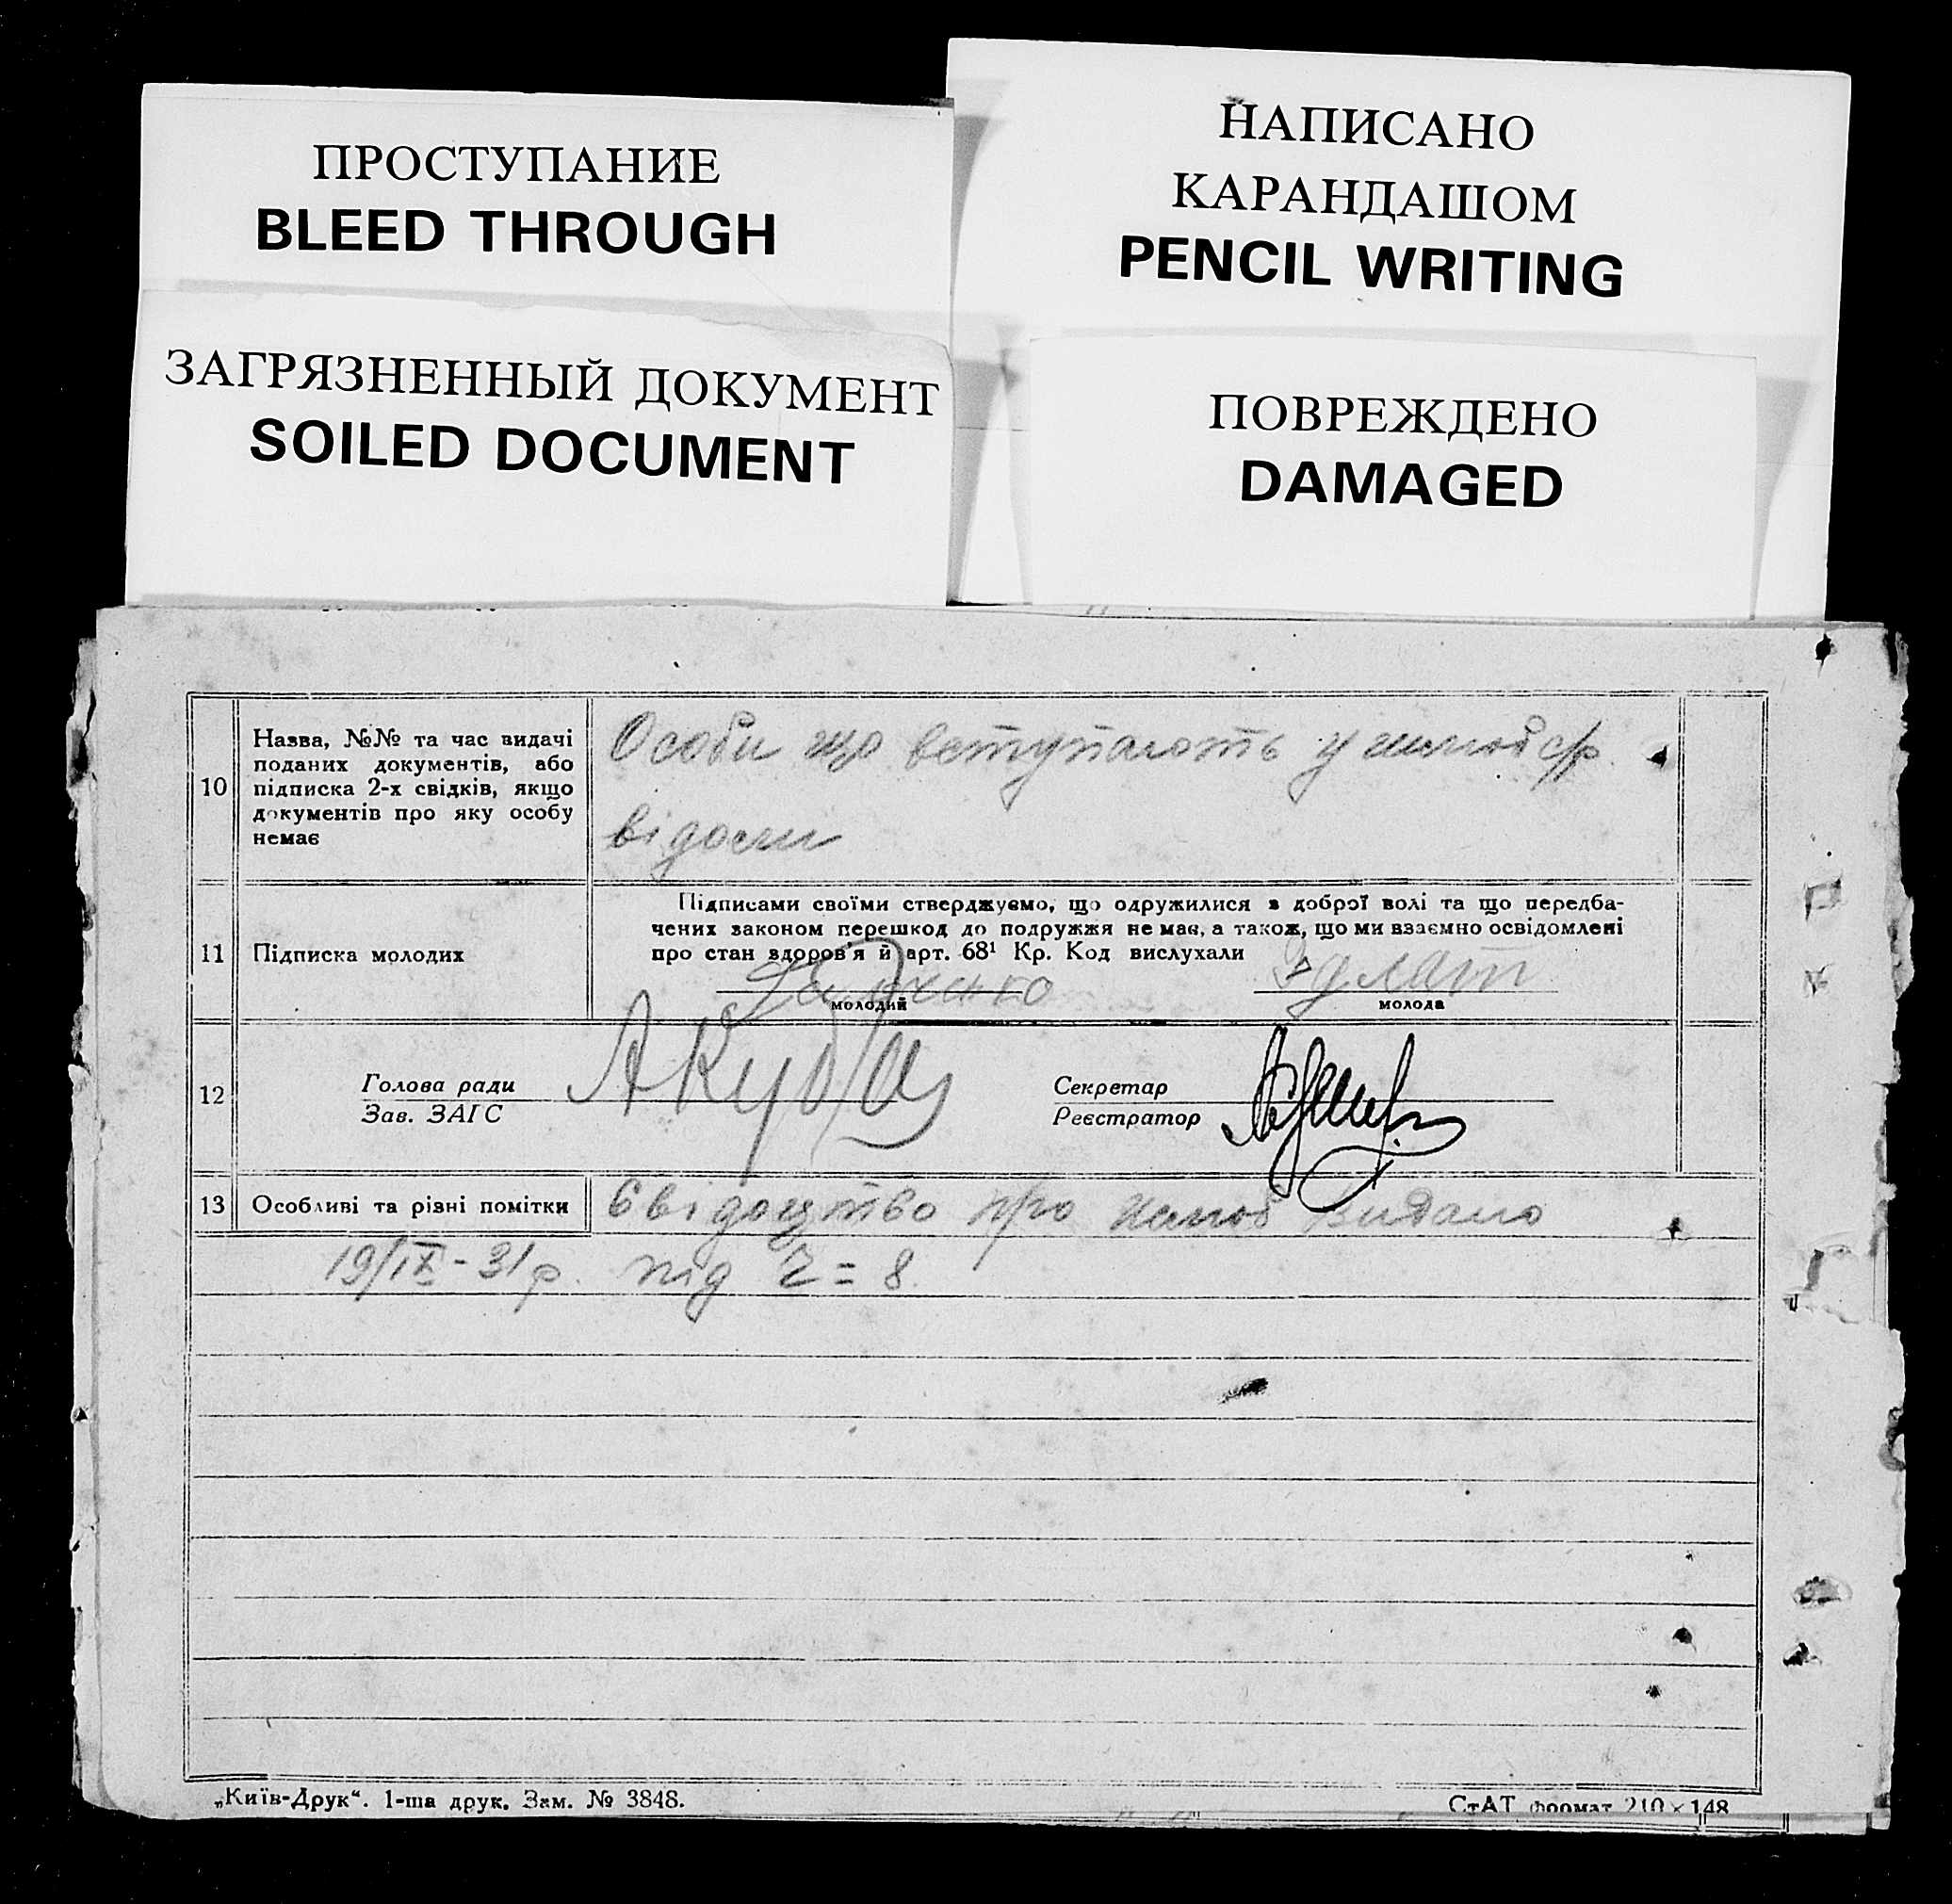 ПРОСТУПАНИЕ
BLEED THROUGH
НАПИСАНО
КАРАНДАШОМ
PENCIL WRITING
ЗАГРЯЗНЕННЫЙ ДОКУМЕНТ
SOILED DOCUMENT
ПОВРЕЖДЕНО
DAMAGED
10
Назва, №№ та час видачі
поданих документів, або
підписка 2-х свідків, якщо
документів про яку особу
немає
Особи що вступають у шлюб с/р.
відомі
11
Підписка молодих
Підписами своїми стверджуємо, що одружилися з доброї волі та що передба-
чених законом перешкод до подружжя не має, а також, що ми взаємно освідомлені
про стан здоров'я й арт. 68¹ Кр. Код вислухали
молодий
молода
12
Голова ради
Зав. ЗАГС
Секретар
Реєстратор
13
Особливі та рівні помітки
Свідоцтво про шлюб видано
19/IX-31 р. під Ч = 8.
„Київ-Друк“. 1-ша друк. Зам. № 3848.
СтАТ формат 210 × 148